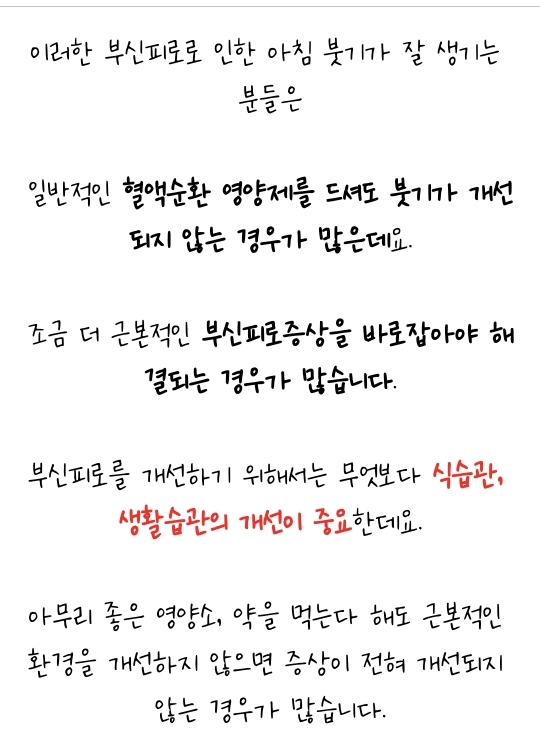 이러한 부신피로로 인한 아침 붓기가 잘 생기는
분들은
일반적인 혈액순환 영양제를 드셔도 붓기가 개선
되지 않는 경우가 많은데요.
조금 더 근본적인 부신피로증상을 바로잡아야 해
결되는 경우가 많습니다.
부신피로를 개선하기 위해서는 무엇보다 식습관,
생활습관의 개선이 중요한데요.
아무리 좋은 영양소, 약을 먹는다 해도 근본적인
환경을 개선하지 않으면 증상이 전혀 개선되지
않는 경우가 많습니다.